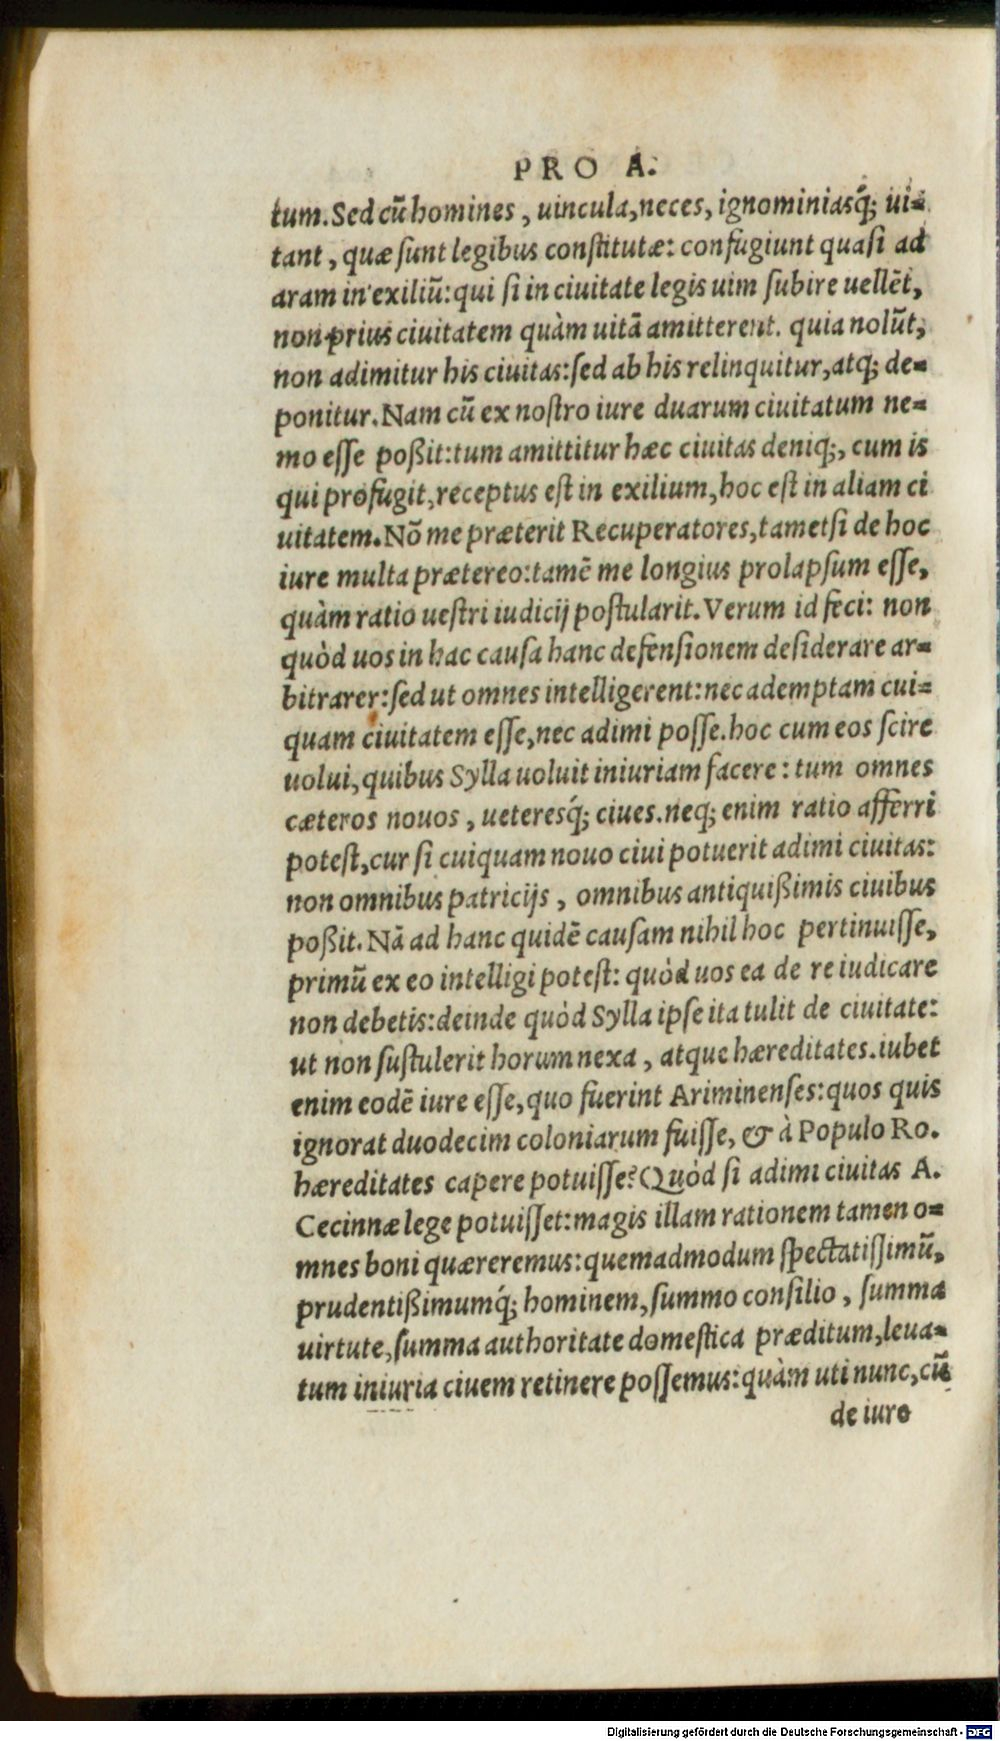 PRO A.
tum. Sed cũ homines, uincula, neces, ignominiasq́; ui=
tant, quæ ſunt legibus conſtitutæ: confugiunt quaſi ad
aram in exiliũ: qui ſi in ciuitate legis uim ſubire uellẽt,
non prius ciuitatem quàm uitã amitterent. quia nolũt,
non adimitur his ciuitas: ſed ab his relinquitur, atq; de=
ponitur. Nam cũ ex noſtro iure duarum ciuitatum ne=
mo eſſe poßit: tum amittitur hæc ciuitas deniq;, cum is
qui profugit, receptus eſt in exilium, hoc eſt in aliam ci
uitatem. Nõ me præterit Recuperatores, tametſi de hoc
iure multa prætereo: tamẽ me longius prolapſum eſſe,
quàm ratio ueſtri iudicij poſtularit. Verum id feci: non
quòd uos in hac cauſa hanc defenſionem deſiderare ar=
bitrarer: ſed ut omnes intelligerent: nec ademptam cui=
quam ciuitatem eſſe, nec adimi poſſe. hoc cum eos ſcire
uolui, quibus Sylla uoluit iniuriam facere: tum omnes
cæteros nouos, ueteresq́; ciues. neq; enim ratio afferri
poteſt, cur ſi cuiquam nouo ciui potuerit adimi ciuitas:
non omnibus patricijs, omnibus antiquißimis ciuibus
poßit. Nã ad hanc quidẽ cauſam nihil hoc pertinuiſſe,
primũ ex eo intelligi poteſt: quòd uos ea de re iudicare
non debetis: deinde quòd Sylla ipſe ita tulit de ciuitate:
ut non ſuſtulerit horum nexa, atque hæreditates. iubet
enim eodẽ iure eſſe, quo fuerint Ariminenſes: quos quis
ignorat duodecim coloniarum fuiſſe, & à Populo Ro.
hæreditates capere potuiſſe? Quòd ſi adimi ciuitas A.
Cecinnæ lege potuiſſet: magis illam rationem tamen o=
mnes boni quæreremus: quemadmodum ſpectatiſſimũ,
prudentißimumq́; hominem, ſummo conſilio, ſumma
uirtute, ſumma authoritate domeſtica præditum, leua=
tum iniuria ciuem retinere poſſemus: quàm uti nunc, cũ
de iure
Digitalisierung gefördert durch die Deutsche Forschungsgemeinschaft - DFG